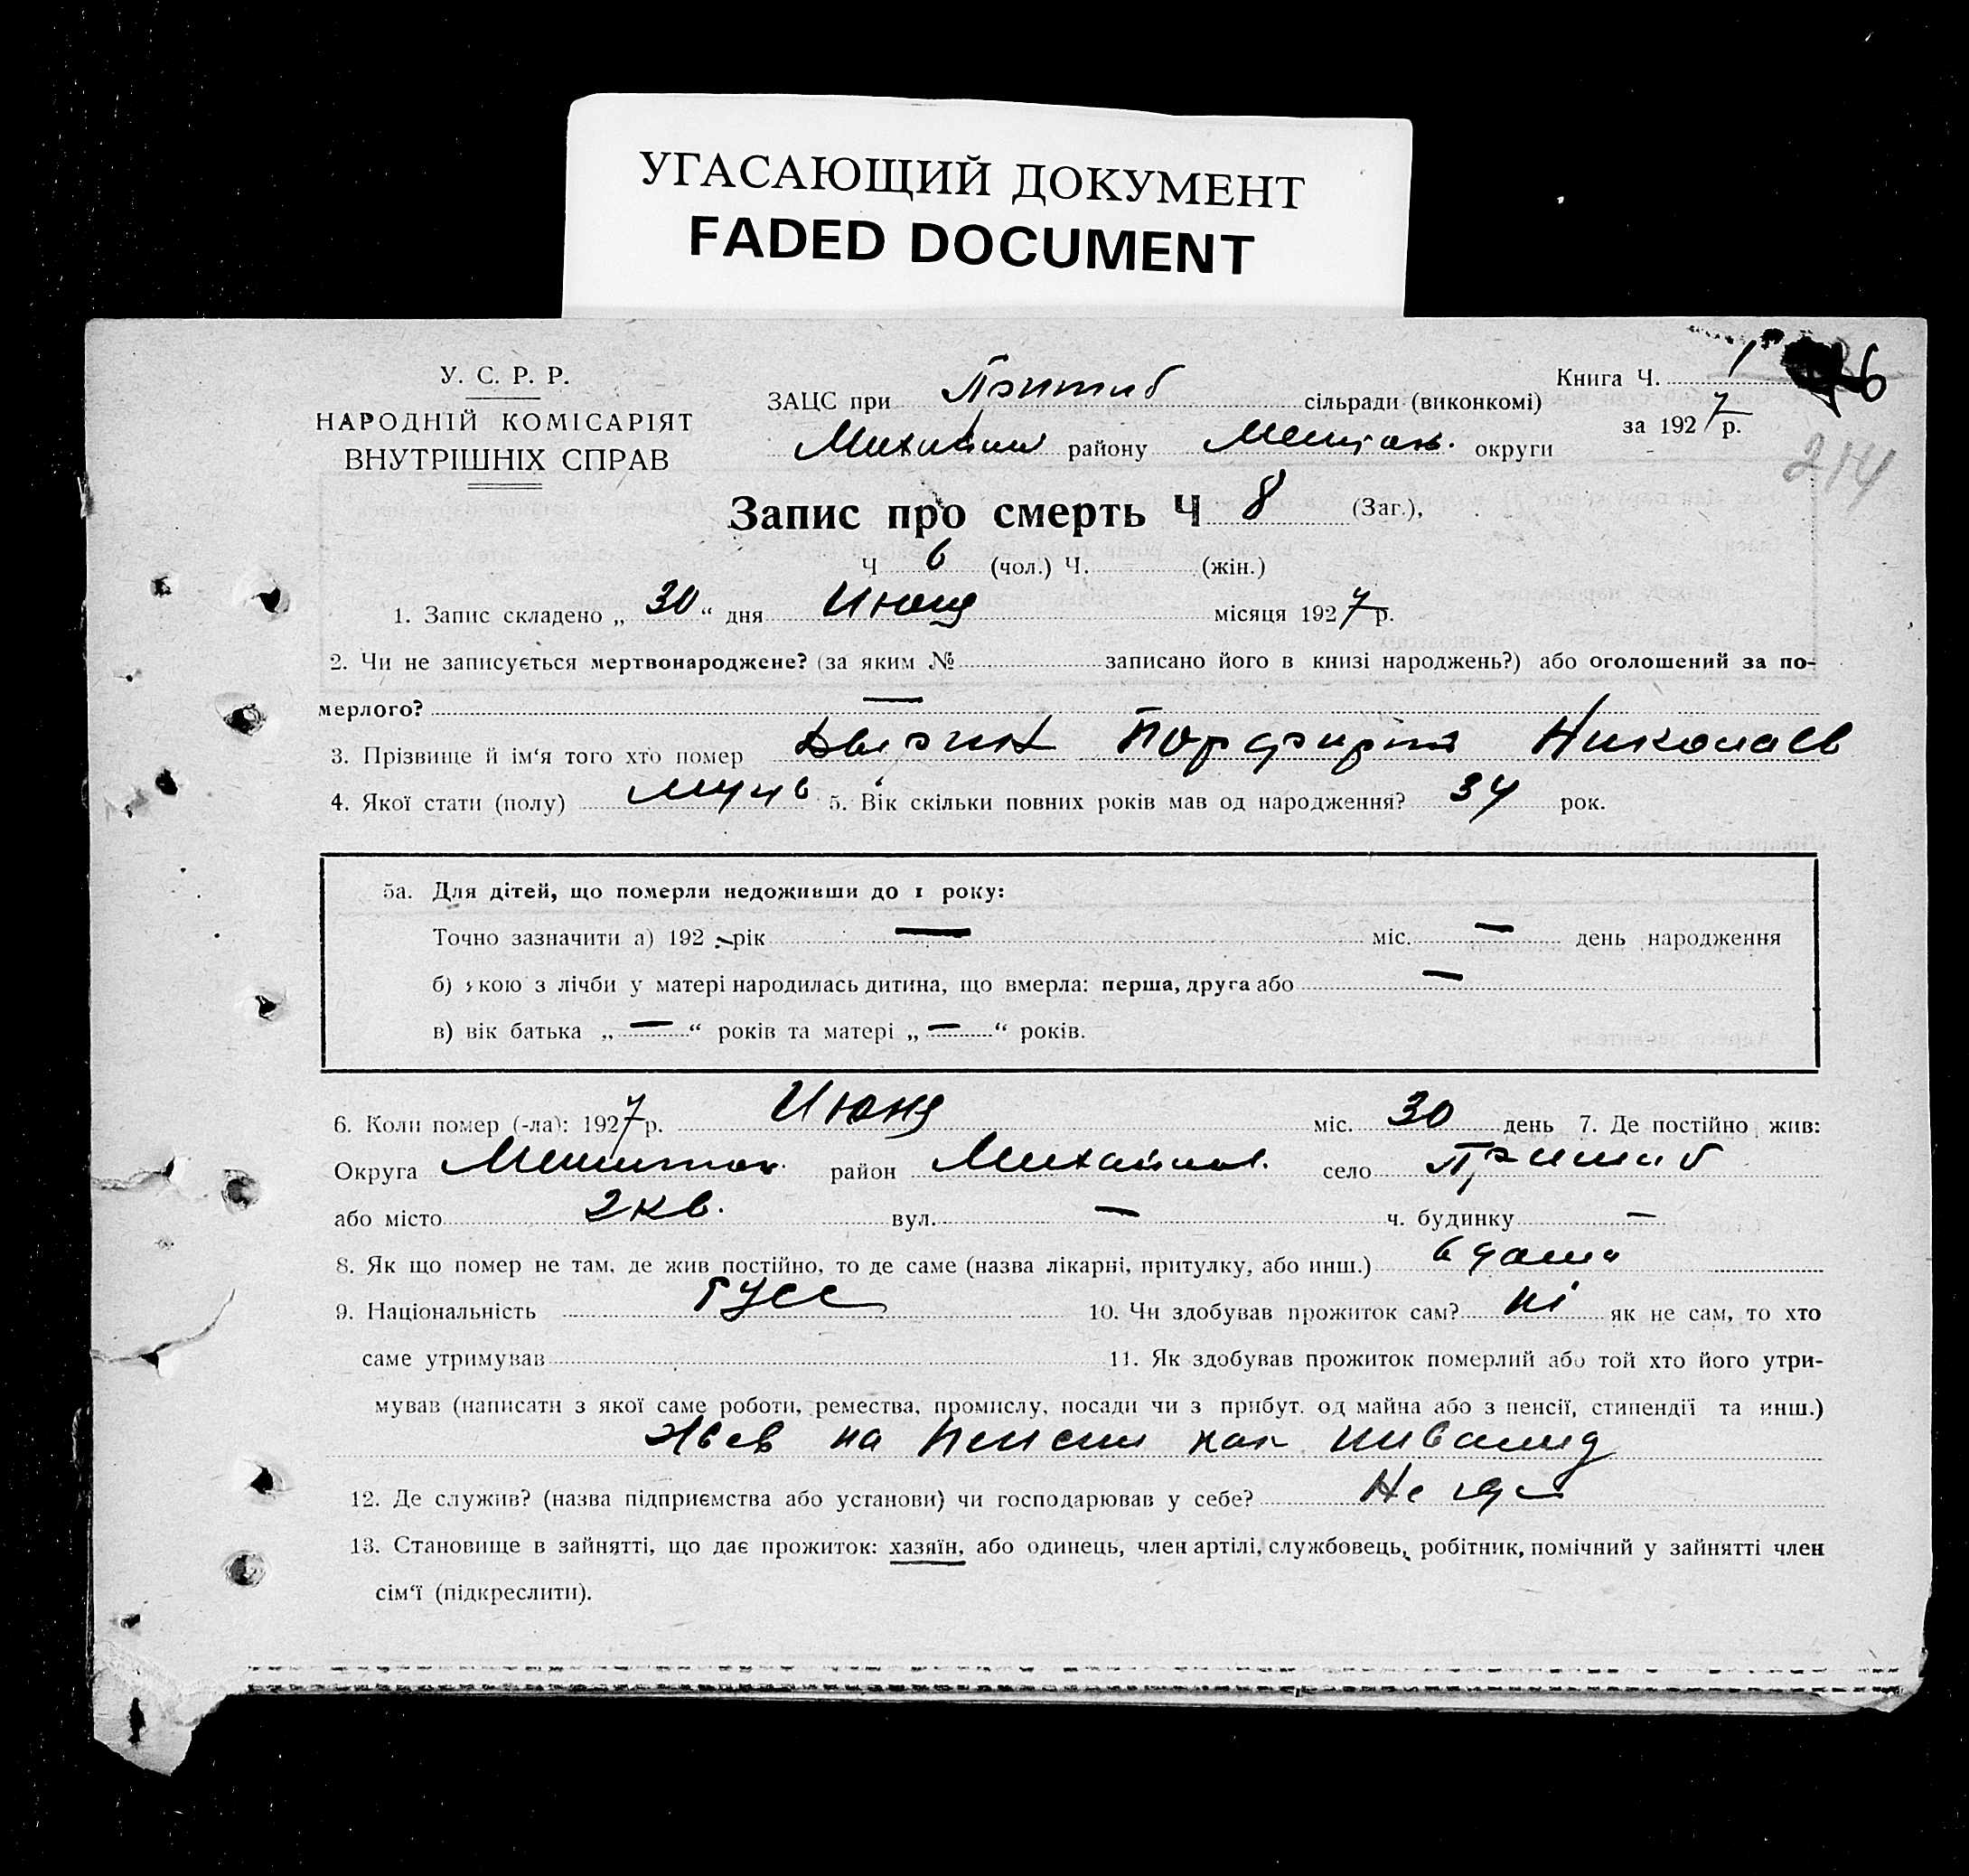 УГАСАЮЩИЙ ДОКУМЕНТ
FADED DOCUMENT
У. С. Р. Р.
НАРОДНІЙ КОМІСАРІЯТ
ВНУТРІШНІХ СПРАВ
ЗАЦС при Пришиб сільради (виконкомі)
району округи
Книга Ч. 1
за 1927 р.
6
214
Запис про смерть Ч 8 (Заг.),
Ч 6 (чол.) Ч. (жін.)
1. Запис складено „ 30 “ дня Июня місяця 1927 р.
2. Чи не записується мертвонароджене? (за яким № записано його в книзі народжень?) або оголошений за по-
мерлого? —
3. Прізвище й ім‘я того хто помер Порфирій Николаев
4. Якої стати (полу) 5. Вік скільки повних років мав од народження? 34 рок.
5а. Для дітей, що померли недоживши до 1 року:
Точно зазначити а) 192 рік — міс. — день народження
б) якою з лічби у матері народилась дитина, що вмерла: перша, друга або —
в) вік батька „ — “ років та матері „ — “ років.
6. Коли помер (-ла): 1927 р. Июня міс. 30 день 7. Де постійно жив:
Округа район село Пришиб
або місто 2 кв. вул. — ч. будинку —
8. Як що помер не там, де жив постійно, то де саме (назва лікарні, притулку, або инш.) в дома
9. Національність русс 10. Чи здобував прожиток сам? ні як не сам, то хто
саме утримував 11. Як здобував прожиток померлий або той хто його утри-
мував (написати з якої саме роботи, ремества, промислу, посади чи з прибут. од майна або з пенсії, стипендії та инш.)
на пенсии как инвалид
12. Де служив? (назва підприємства або установи) чи господарював у себе? Не
13. Становище в зайнятті, що дає прожиток: хазяїн, або одинець, член артілі, службовець, робітник, помічний у зайнятті член
сім‘ї (підкреслити).